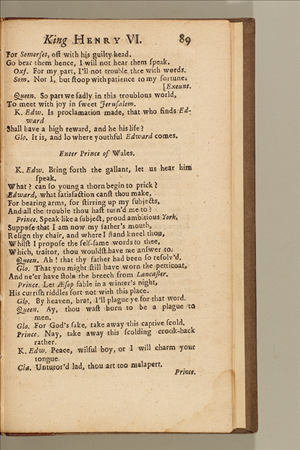 King HENRY VI. 89
For Somerset, off with his guilty head.
Go bear them hence, I will not hear them speak.
Oxf. For my part, I'll not trouble thee with words.
Som. Nor I, but stoop with patience to my fortune.
[Exeunt.
Queen. So part we sadly in this troublous world,
To meet with joy in sweet Jerusalem.
K. Edw. Is proclamation made, that who finds Ed-
ward
Shall have a high reward, and he his life?
Glo. It is, and lo where youthful Edward comes.
Enter Prince of Wales.
K. Edw. Bring forth the gallant, let us hear him
speak.
What? can so young a thorn begin to prick?
Edward, what satisfaction canst thou make,
For bearing arms, for stirring up my subjects,
And all the trouble thou hast turn'd me to?
Prince. Speak like a subject, proud ambitious York,
Suppose that I am now my father's mouth,
Resign thy chair, and where I stand kneel thou,
Whilst I propose the self-same words to thee,
Which, traitor, thou wouldst have me answer to.
Queen. Ah! that thy father had been so resolv'd.
Glo. That you might still have worn the petticoat,
And ne'er have stoln the breech from Lancaster.
Prince. Let Æsop fable in a winter's night,
His currish riddles sort not with this place.
Glo. By heaven, brat, I'll plague ye for that word.
Queen. Ay, thou wast born to be a plague to
men.
Glo. For God's sake, take away this captive scold.
Prince. Nay, take away this scolding crook-back
rather.
K. Edw. Peace, wilful boy, or I will charm your
tongue.
Cla. Untutor'd lad, thou art too malapert.
Prince.